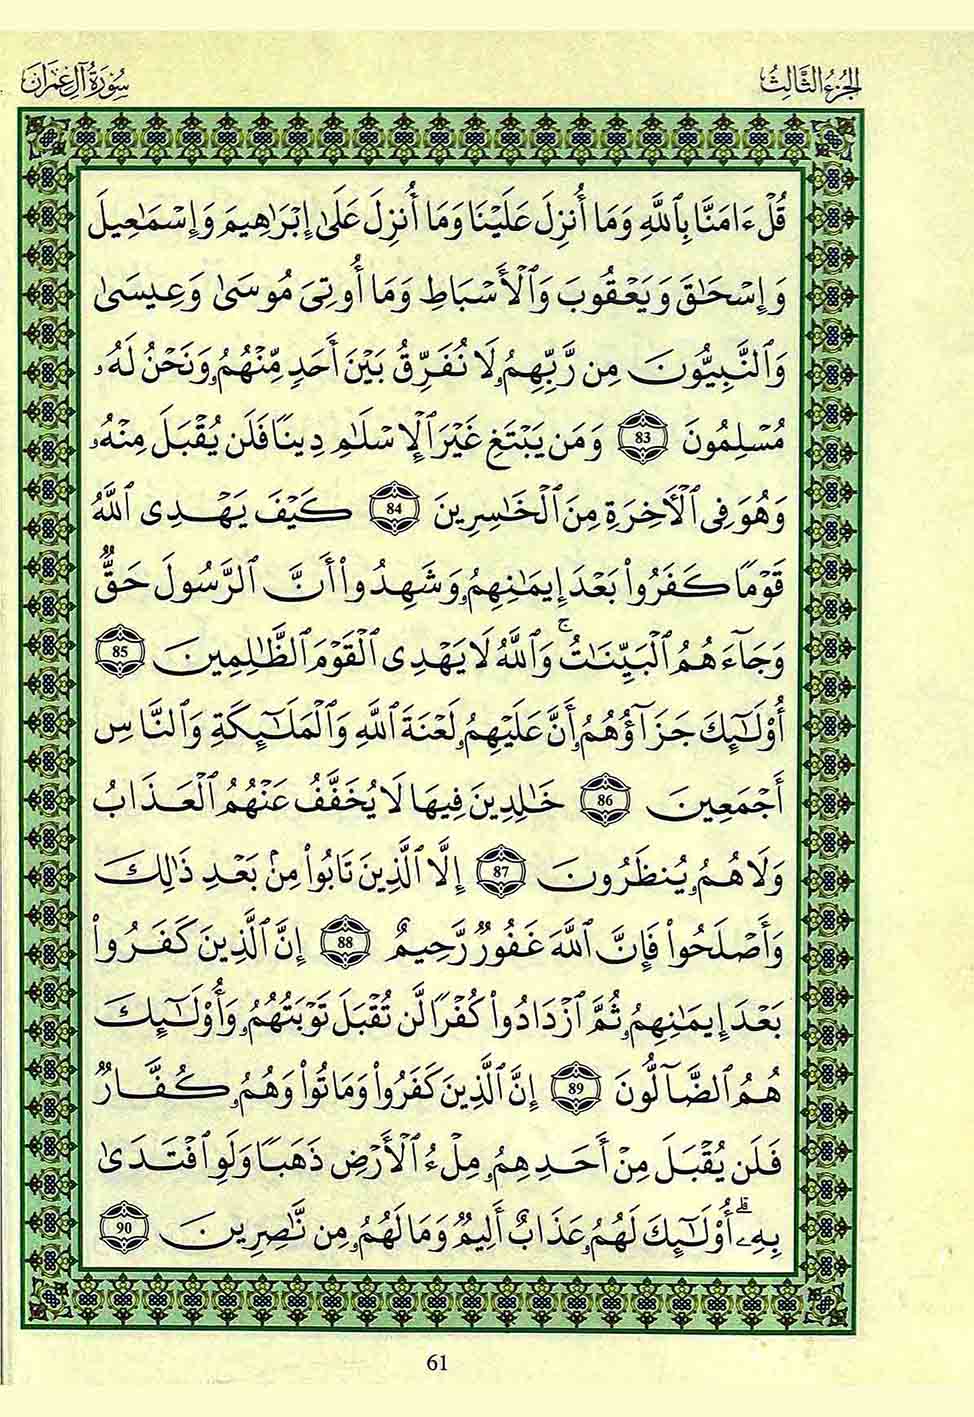 الجزء الثالث
سورة آل عمران
قُلۡ ءَامَنَّا بِٱللَّهِ وَمَا أُنزِلَ عَلَيۡنَا وَمَا أُنزِلَ عَلَىٰ إِبۡرَٰهِيمَ وَإِسۡمَٰعِيلَ
وَإِسۡحَٰقَ وَيَعۡقُوبَ وَٱلۡأَسۡبَاطِ وَمَا أُوتِىَ مُوسَىٰ وَعِيسَىٰ
وَٱلنَّبِيُّونَ مِن رَّبِّهِمُۥ لَا نُفَرِّقُ بَيۡنَ أَحَدٖ مِّنۡهُمُۥ وَنَحۡنُ لَهُۥ
مُسۡلِمُونَ 83 وَمَن يَبۡتَغِ غَيۡرَ ٱلۡإِسۡلَٰمِ دِينٗا فَلَن يُقۡبَلَ مِنۡهُۥ
وَهُوَ فِى ٱلۡأٓخِرَةِ مِنَ ٱلۡخَٰسِرِينَ 84 كَيۡفَ يَهۡدِى ٱللَّهُ
قَوۡمٗا كَفَرُواْ بَعۡدَ إِيمَٰنِهِمُۥ وَشَهِدُواْ أَنَّ ٱلرَّسُولَ حَقّٞ
وَجَآءَهُمُ ٱلۡبَيِّنَٰتُۚ وَٱللَّهُ لَا يَهۡدِى ٱلۡقَوۡمَ ٱلظَّٰلِمِينَ 85
أُوْلَٰٓئِكَ جَزَآؤُهُمُۥ أَنَّ عَلَيۡهِمُۥ لَعۡنَةَ ٱللَّهِ وَٱلۡمَلَٰٓئِكَةِ وَٱلنَّاسِ
أَجۡمَعِينَ 86 خَٰلِدِينَ فِيهَا لَا يُخَفَّفُ عَنۡهُمُ ٱلۡعَذَابُ
وَلَا هُمُۥ يُنظَرُونَ 87 إِلَّا ٱلَّذِينَ تَابُواْ مِنۢ بَعۡدِ ذَٰلِكَ
وَأَصۡلَحُواْ فَإِنَّ ٱللَّهَ غَفُورٞ رَّحِيمٌ 88 إِنَّ ٱلَّذِينَ كَفَرُواْ
بَعۡدَ إِيمَٰنِهِمُۥ ثُمَّ ٱزۡدَادُواْ كُفۡرٗا لَّن تُقۡبَلَ تَوۡبَتُهُمُۥ وَأُوْلَٰٓئِكَ
هُمُ ٱلضَّآلُّونَ 89 إِنَّ ٱلَّذِينَ كَفَرُواْ وَمَاتُواْ وَهُمُۥ كُفَّارٞ
فَلَن يُقۡبَلَ مِنۡ أَحَدِهِمُۥ مِلۡءُ ٱلۡأَرۡضِ ذَهَبٗا وَلَوِ ٱفۡتَدَىٰ
بِهِۦۗ أُوْلَٰٓئِكَ لَهُمُۥ عَذَابٌ أَلِيمٞ وَمَا لَهُمُۥ مِن نَّٰصِرِينَ 90
61